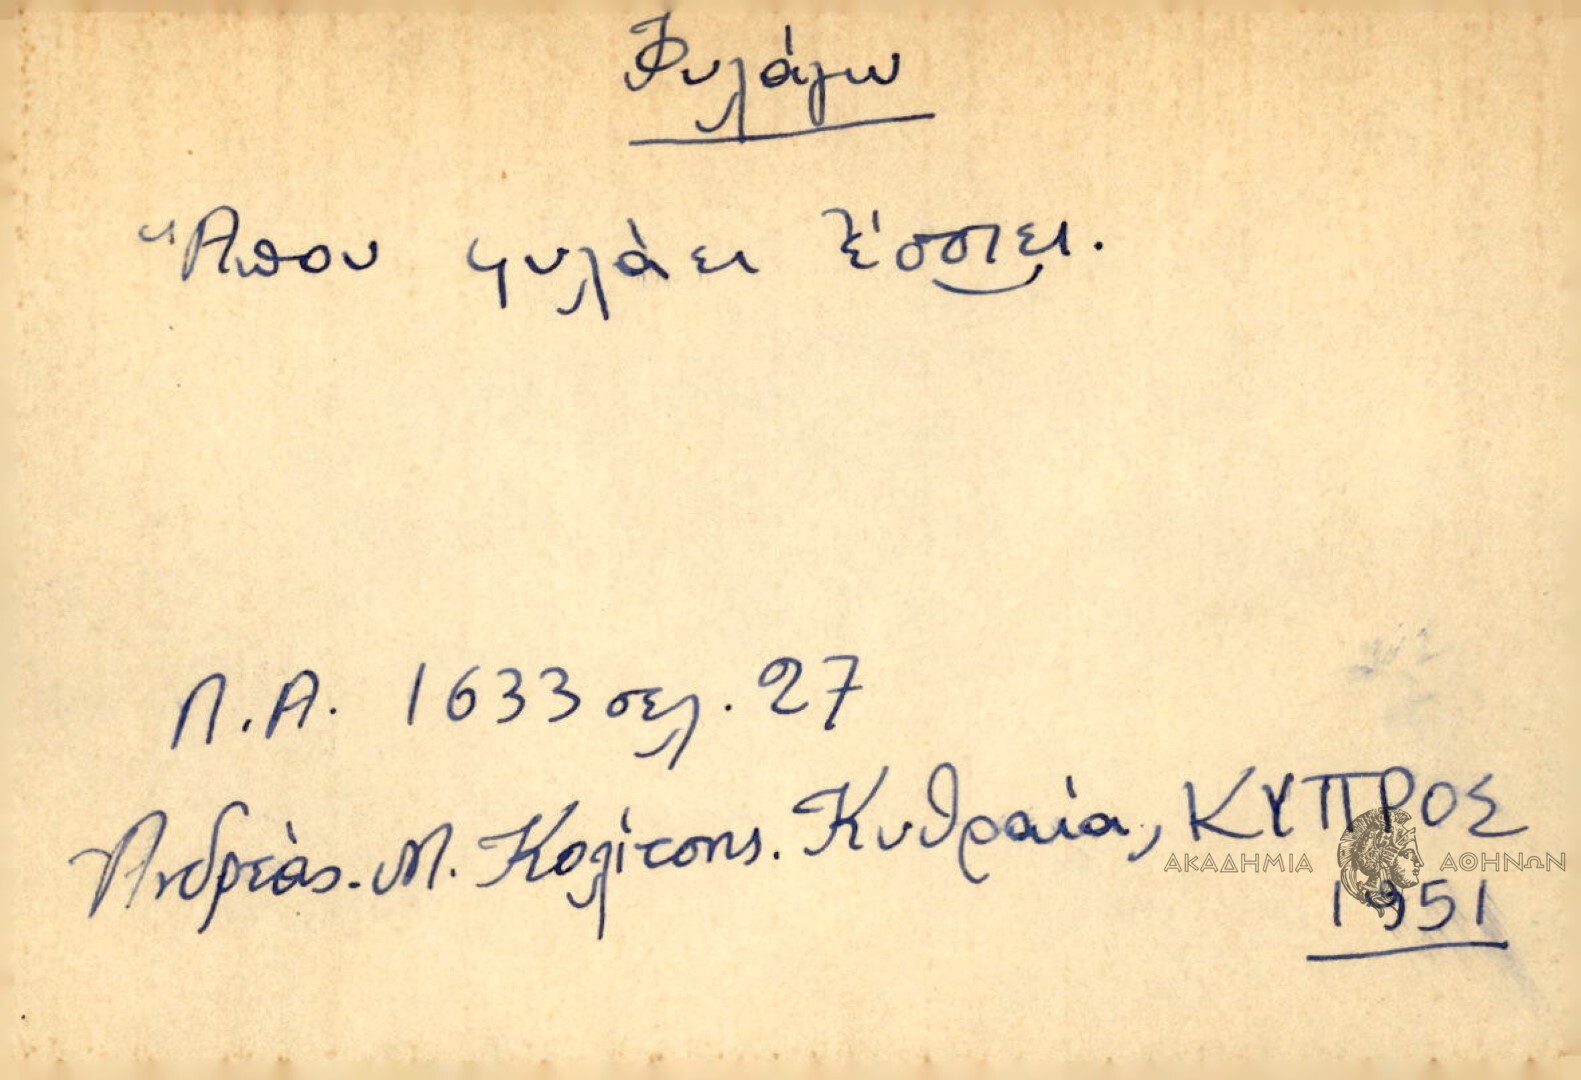 Φυλάγω
Ἅπου φυλάει ξέσσιει.
Λ.Α. 1633 σελ. 27
Ἀνδρέας. Μ. Κολίτσης. Κυθραία, ΚΥΠΡΟΣ
ΑΚΑΔΗΜΙΑ ΑΘΗΝΩΝ
1951